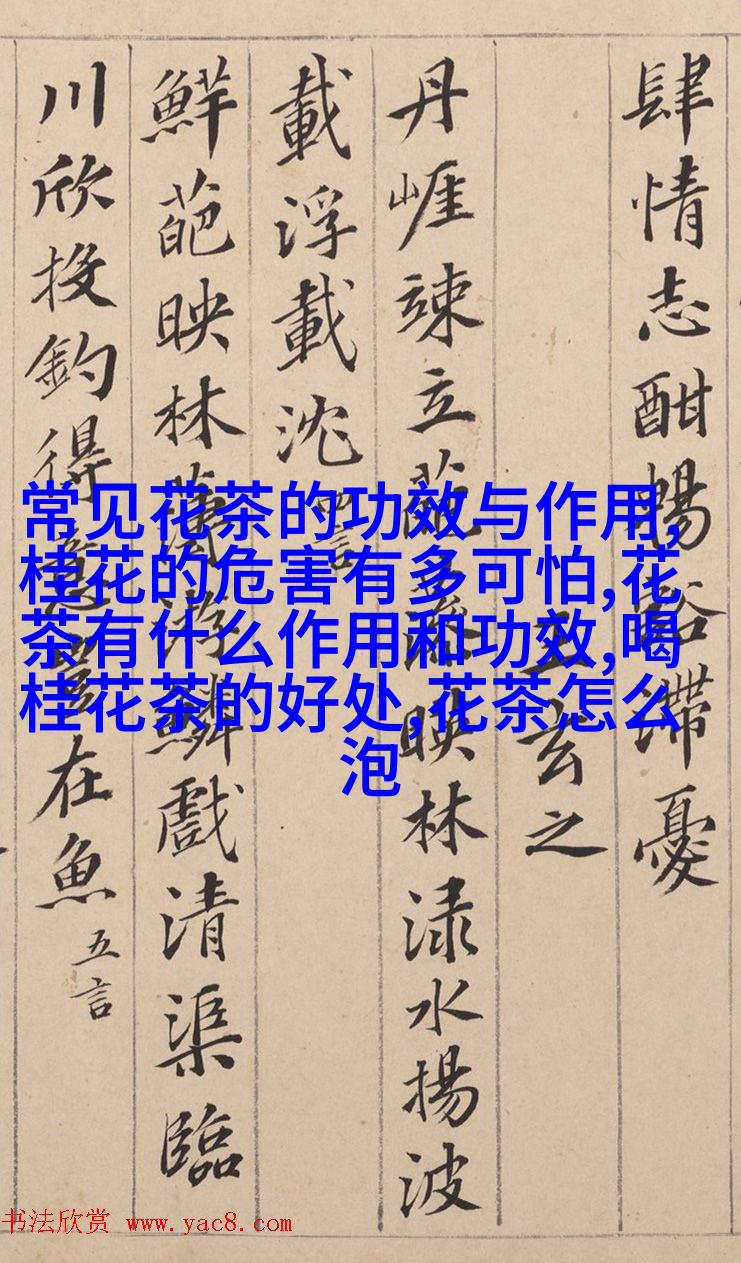 肆情志酣暢豁滯憂
王玄之
丹崕竦立葩藻映林淥水揚波
載浮載沈 四言
鮮葩映林薄游鱗戲清渠臨
川欣投釣得意豈在魚 五言
常见花茶的功效与作用,
桂花的危害有多可怕,花
茶有什么作用和功效,喝
桂花茶的好处,花茶怎么
泡
书法欣赏 www.yac8.com